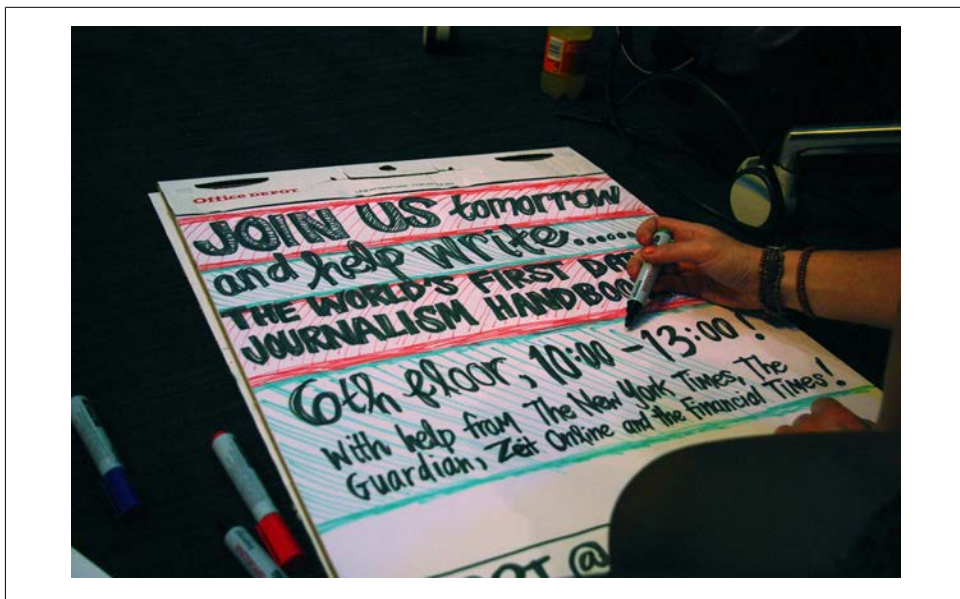 Office DEPOT
JOIN US tomorrow
and help write.......
THE WORLD'S FIRST
JOURNALISM
6th floor, 10:00 - 13:00!
With help from The New York Times, The
Guardian, Zeit Online and the Financial Times!
@